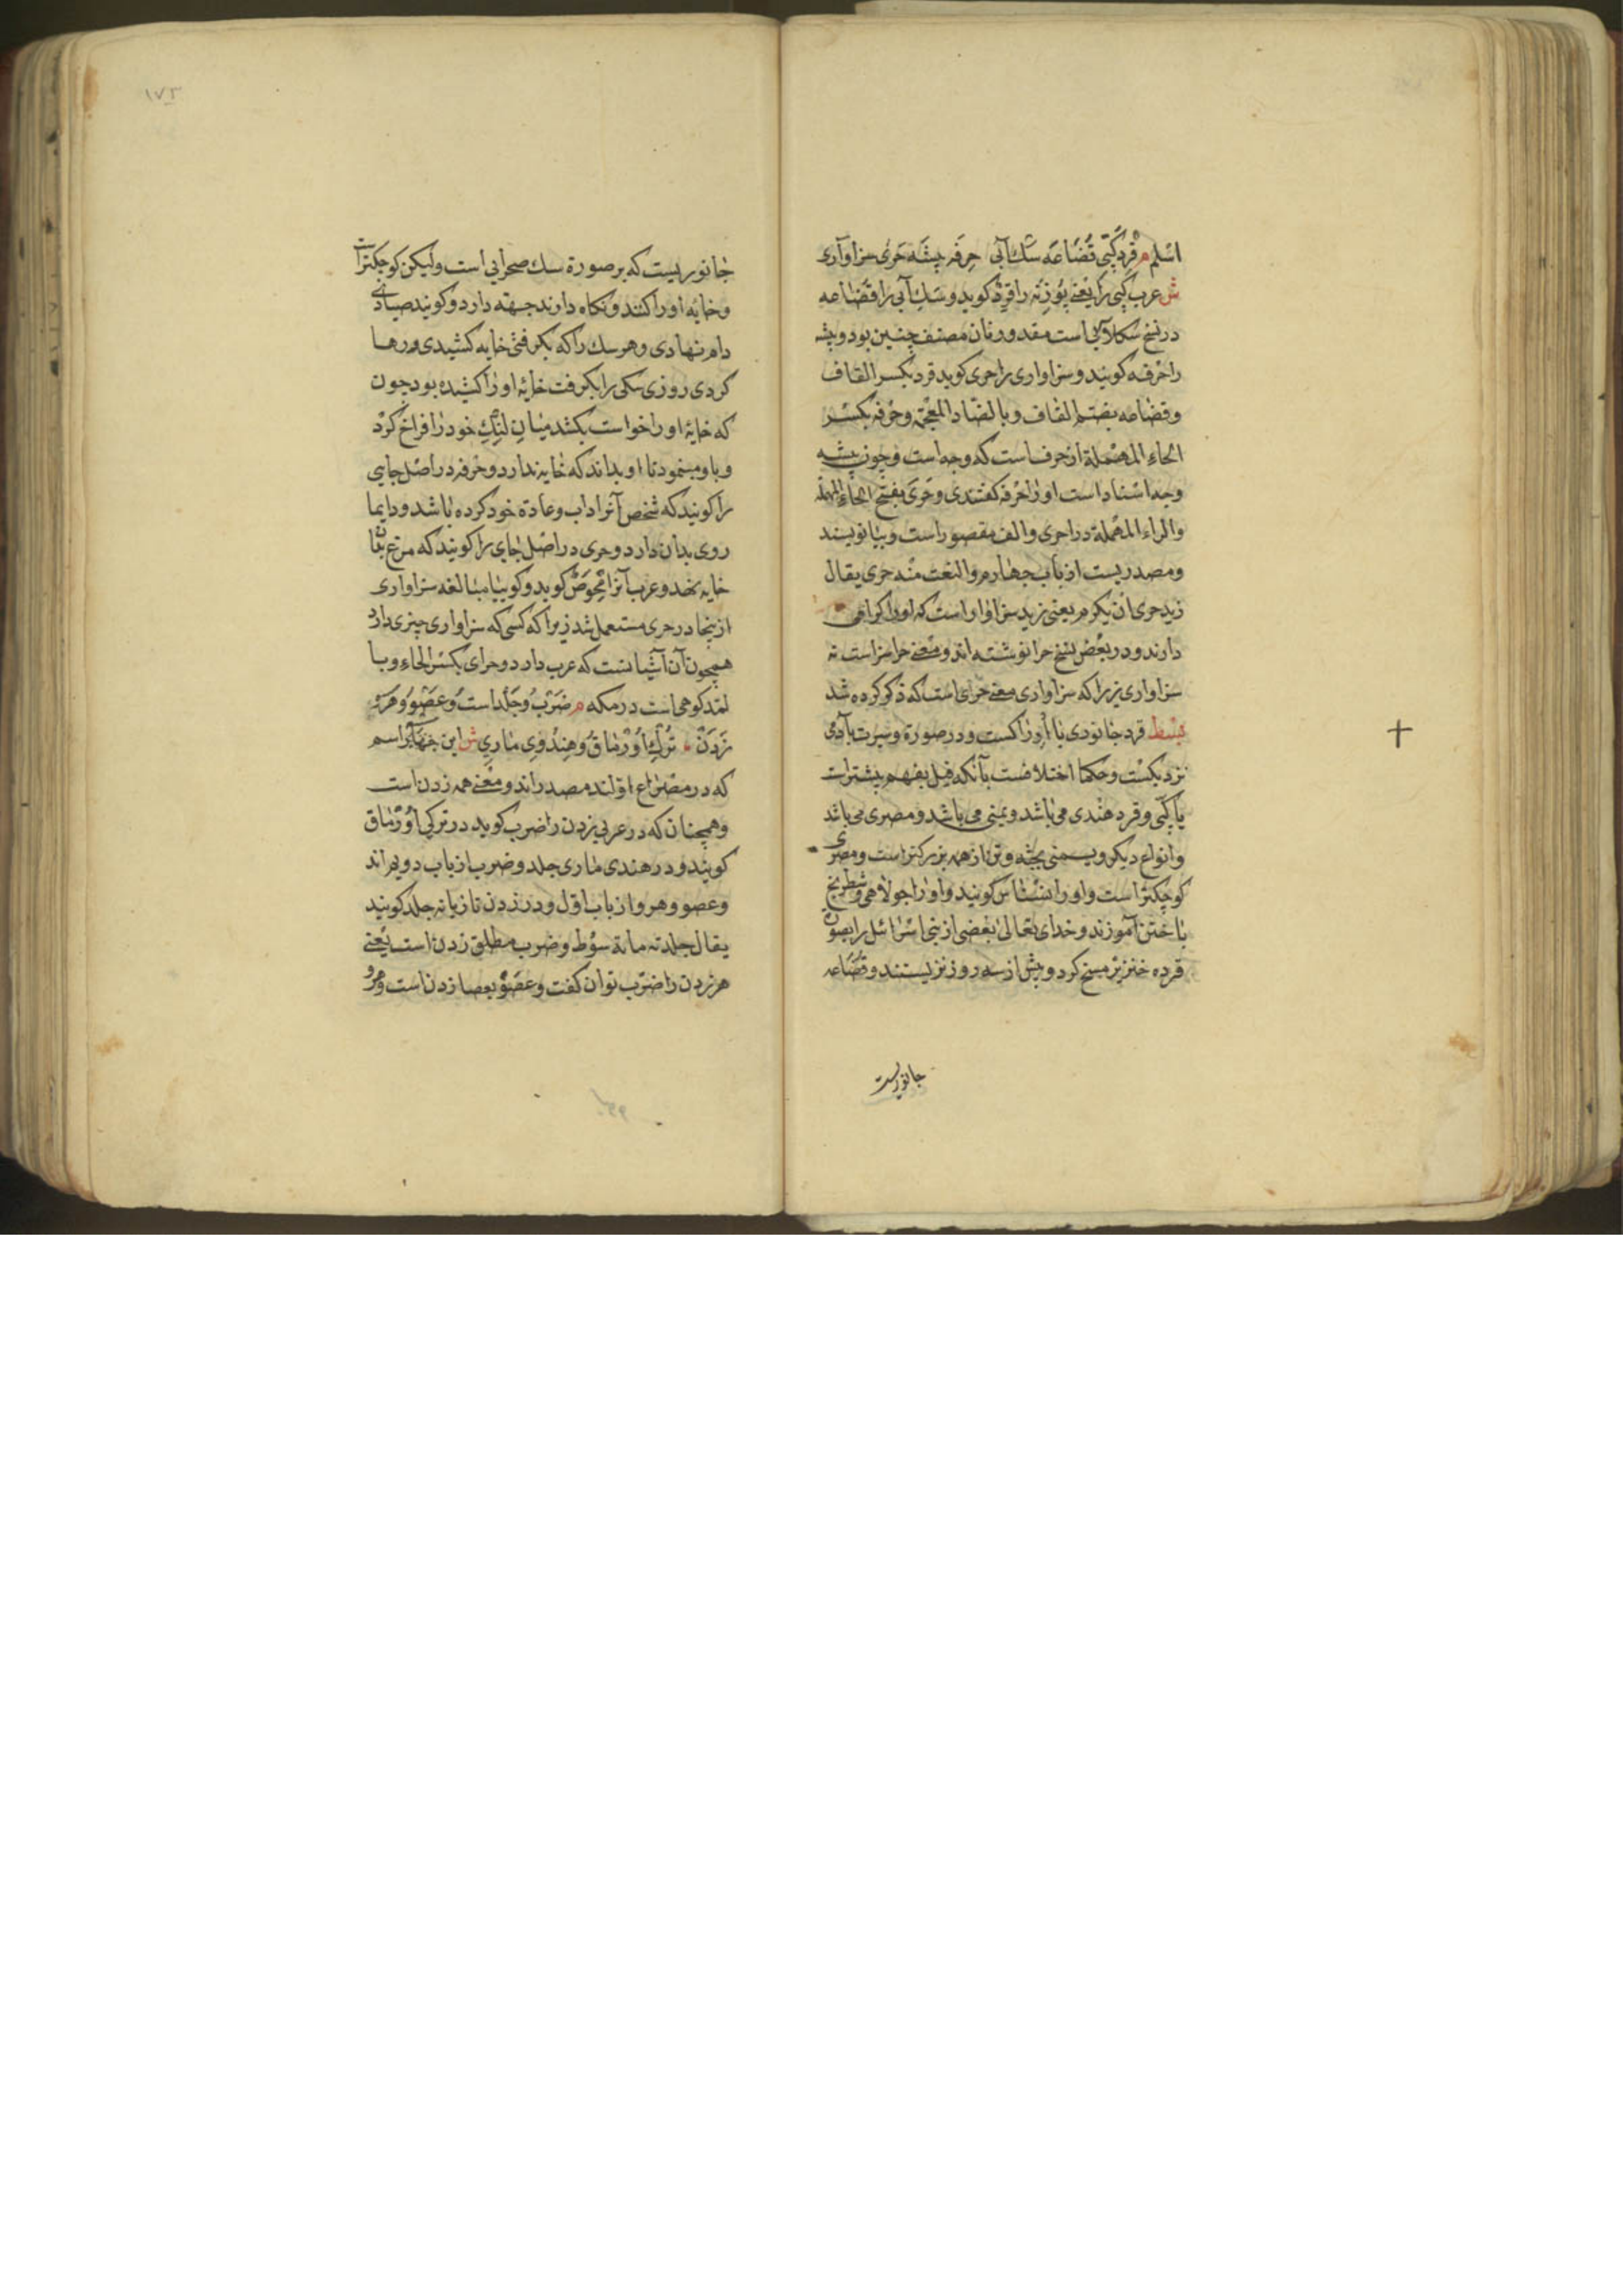 اسلم م قرد كپی قضاعه سك آبی حرفه پیشه حری سزاواری
ش عرب كپی را یعنی پوزنه را قرد كوید و سك آبی را قضاعه
در نسخ سكلابی است مقدور زبان مصنف چنین بود و پیشه
را حرفه كویند و سزاواری را حری كوید قرد بكسر القاف
و قضاعه بضم القاف و بالضاد المعجمة و حرفه بكسر
الحاء المهملة از حرف است كه وجه است و چون پیشه
وجه استناد است او را حرفه كفتندی و حری بفتح الحاء المهملة
والراء المهملة در احری والف مقصور است و بیا نویسند
و مصدریست از باب چهارم والنعت منه حری یقال
زید حری ان یكرم یعنی زید سزاوار است كه او را كرامی
دارند و در بعض نسخ حرا نوشته اند و معنی حرا سزاست نه
سزاواری زیرا كه سزاواری معنی حرای است كه ذكر كرده شد
بسط قرد جانوری با ادراكست و در صورة و سیرت بآدمی
نزدیكست و حكما اختلافست بآنكه فیل بفهم بیشتر است
یا كپی و قرد هندی می باشد و یمنی می باشد و مصری می باشد
و انواع دیكر و یمنی بجثه و تن از همه بزركتر است و مصری
كوچكتر است و او را نسناس كویند و او را جولاهی و شطرنج
باختن آموزند و خدای تعالی بعضی از بنی اسرائیل را بصورة
قرده خنزیر مسخ كرد و بیش از سه روز نزیستند و قضاعه
جانوریست
۱۷۳
جانوریست كه بر صورة سك صحرایی است ولیكن كوچكتر است
و خایه او را كنند و نكاه دارند جبهه دارد و كویند صیادی
دام نهادی و هر سك را كه بكرفتی خایه كشیدی و رها
كردی روزی سكی را بكرفت خایه او را كشیده بود چون
كه خایه او را خواست بكشد میان لنك خود را فراخ كرد
و باو بنمود تا او بداند كه خایه ندارد و حرفه در اصل جایی
را كویند كه شخص آنرا داب و عادة خود كرده باشد و دایما
روی بدان دارد و حری در اصل جای را كویند كه مرغ بآنجا
خایه نهد و عرب آنرا افحوص كوید و كوییا مبالغه سزاواری
ازینجا در حری مستعمل شد زیرا كه كسی كه سزاواری چیزی دارد
همچون آن آشیانست كه عرب دارد و حرای بكسر الحاء و با
لمد كوهی است در مكه م ضرب و جلد است و عصو و هرو
زدن ترك اورماق و هندوی ماری ش این چهار اسم
كه در مصراع اولند مصدراند و معنی همه زدن است
و همچنان كه در عربی زدن را ضرب كوید در تركی اورماق
كویند و در هندی ماری جلد و ضرب از باب دویم اند
و عصو و هرو از باب اول و در زدن تازیانه جلد كویند
یقال جلدته مائة سوط و ضرب مطلق زدن است یعنی
هر زدن را ضرب توان كفت و عصو بعصا زدن است و هرو